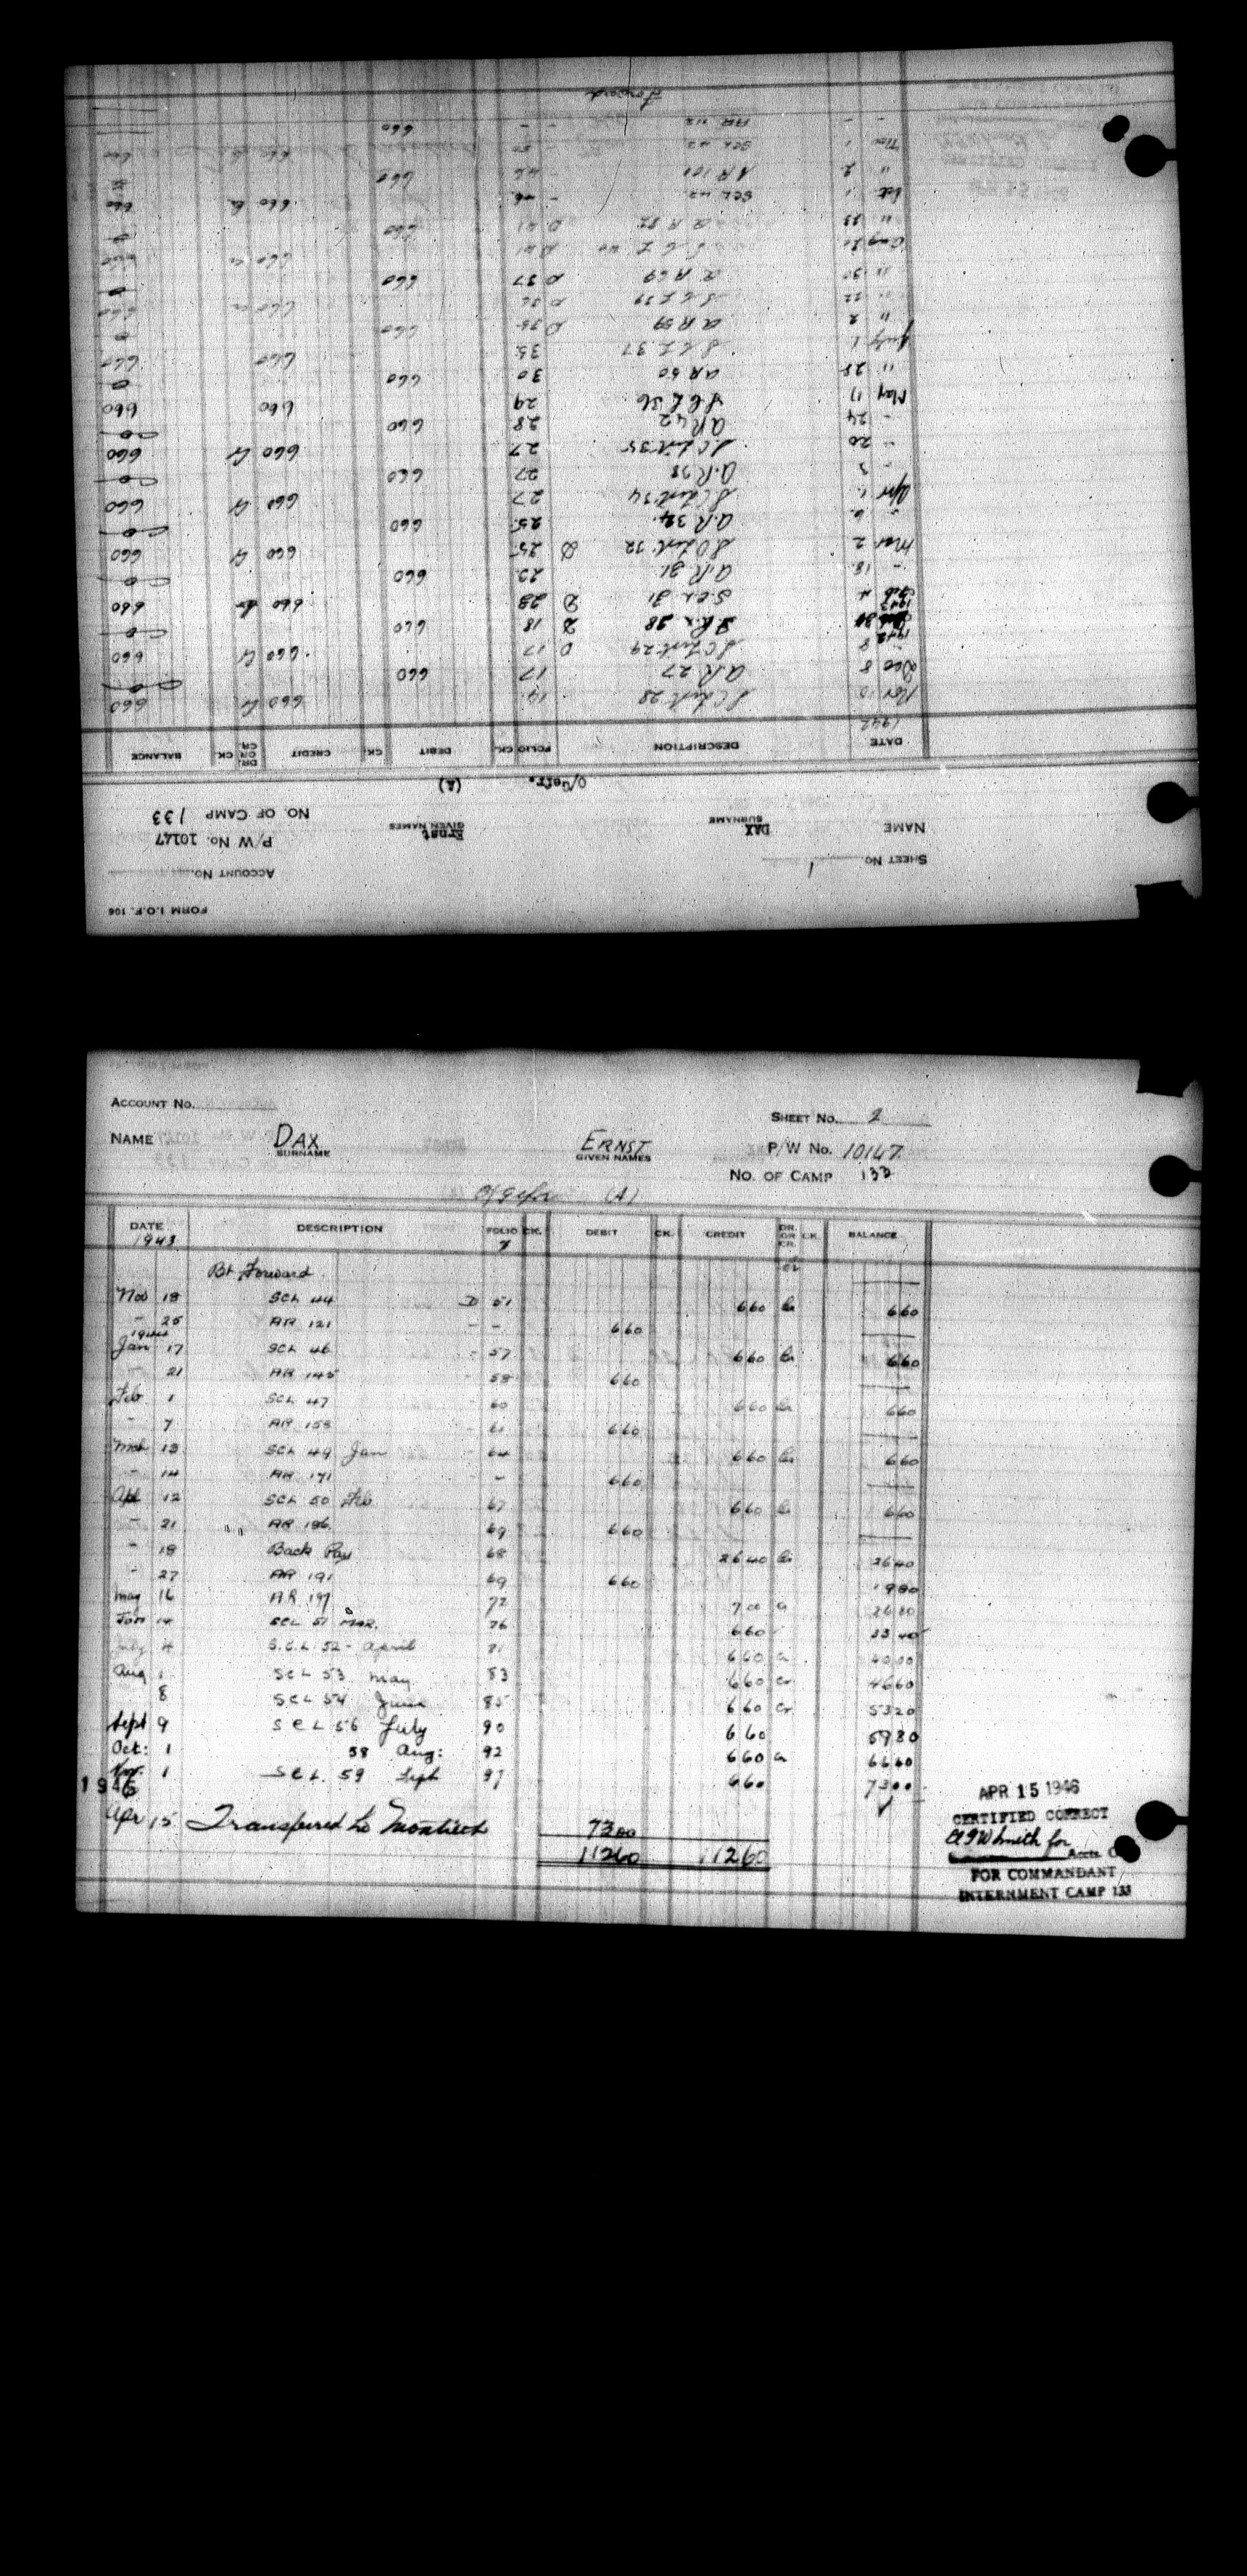 FORM I.O.F. 106
ACCOUNT No.
SHEET No. 1
P/W No. 10147
NAME DAX Ernst
SURNAME GIVEN NAMES
NO. OF CAMP 133
O/Gefr. (A)
DATE DESCRIPTION FOLIO CK. DEBIT CK. CREDIT DR. OR CR. CK. BALANCE
1942
Nov 10 S C List 28 14 660 Cr 660
Dec 8 A.R 27 17 660 0
" 8 S C List 29 D 17 660 Cr 660
1942
28 D 18 660 0
1943
Feb 4 SCL 31 D 23 660 Cr 660
- 18 A.R 31 23 660 0
Mar 2 S C List 32 D 25 660 Cr 660
- 6 A.R 34 25 660 0
Apr 1 S C List 34 27 660 Cr 660
- 3 A.R 38 27 660 0
- 20 S C List 35 27 660 Cr 660
- 24 A R 42 28 660 0
May 17 S C L 36 29 660 660
" 28 A R 50 30 660 0
July 1 S C L 37 35 660 660
" 2 A R 59 D 35 660 0
" 22 S C L 39 D 36 660 Cr 660
" 30 A R 69 D 37 660 0
Aug S C L 40 D 41 660 Cr 660
" 23 A R 82 D 41 660 0
1 SCL 42 - 46 660 Cr 660
" 2 AR 101 - 46 660
Nov 1 SCL - 50 660 Cr 660
- - AR 112 - - 660
Forward
ACCOUNT No.
SHEET No. 2
NAME DAX ERNST P/W No. 10147
SURNAME GIVEN NAMES
NO. OF CAMP 133
O/Gefr (A)
DATE DESCRIPTION FOLIO CK. DEBIT CK. CREDIT DR. OR CR. CK. BALANCE
1943
Bt Forward
Nov 18 SCL 44 D 51 660 Cr 660
- 25 AR 121 - - 660
1944
Jan 17 SCL 46 - 57 660 Cr 660
- 21 AR 145 - 58 660
Feb 1 SCL 47 - 60 660 Cr 660
- 7 AR 153 - 61 660
Mch 13 SCL 49 Jan - 64 660 Cr 660
- 14 AR 171 - 660
Apl 12 SCL 50 Feb 67 660 Cr 660
- 21 AR 186 69 660
- 18 Back Pay 68 2640 Cr 2640
- 27 AR 191 69 660 1980
May 16 A.R. 197 72 700 Cr 2680
Jun 14 SCL 51 Mar. 76 660 3340
July 4 S.C.L 52 - April 81 660 Cr 4000
Aug 1 SCL 53 May 83 660 Cr 4660
8 SCL 54 June 85 660 Cr 5320
Sept 9 SCL 56 July 90 660 5980
Oct: 1 58 Aug: 92 660 Cr 6640
Nov. 1 SCL 59 Sept 97 660 7300
1946
Apr 15 Transferred to Monteith 7300
11260 11260
APR 15 1946
CERTIFIED CORRECT
for
Accts. O
FOR COMMANDANT
INTERNMENT CAMP 133